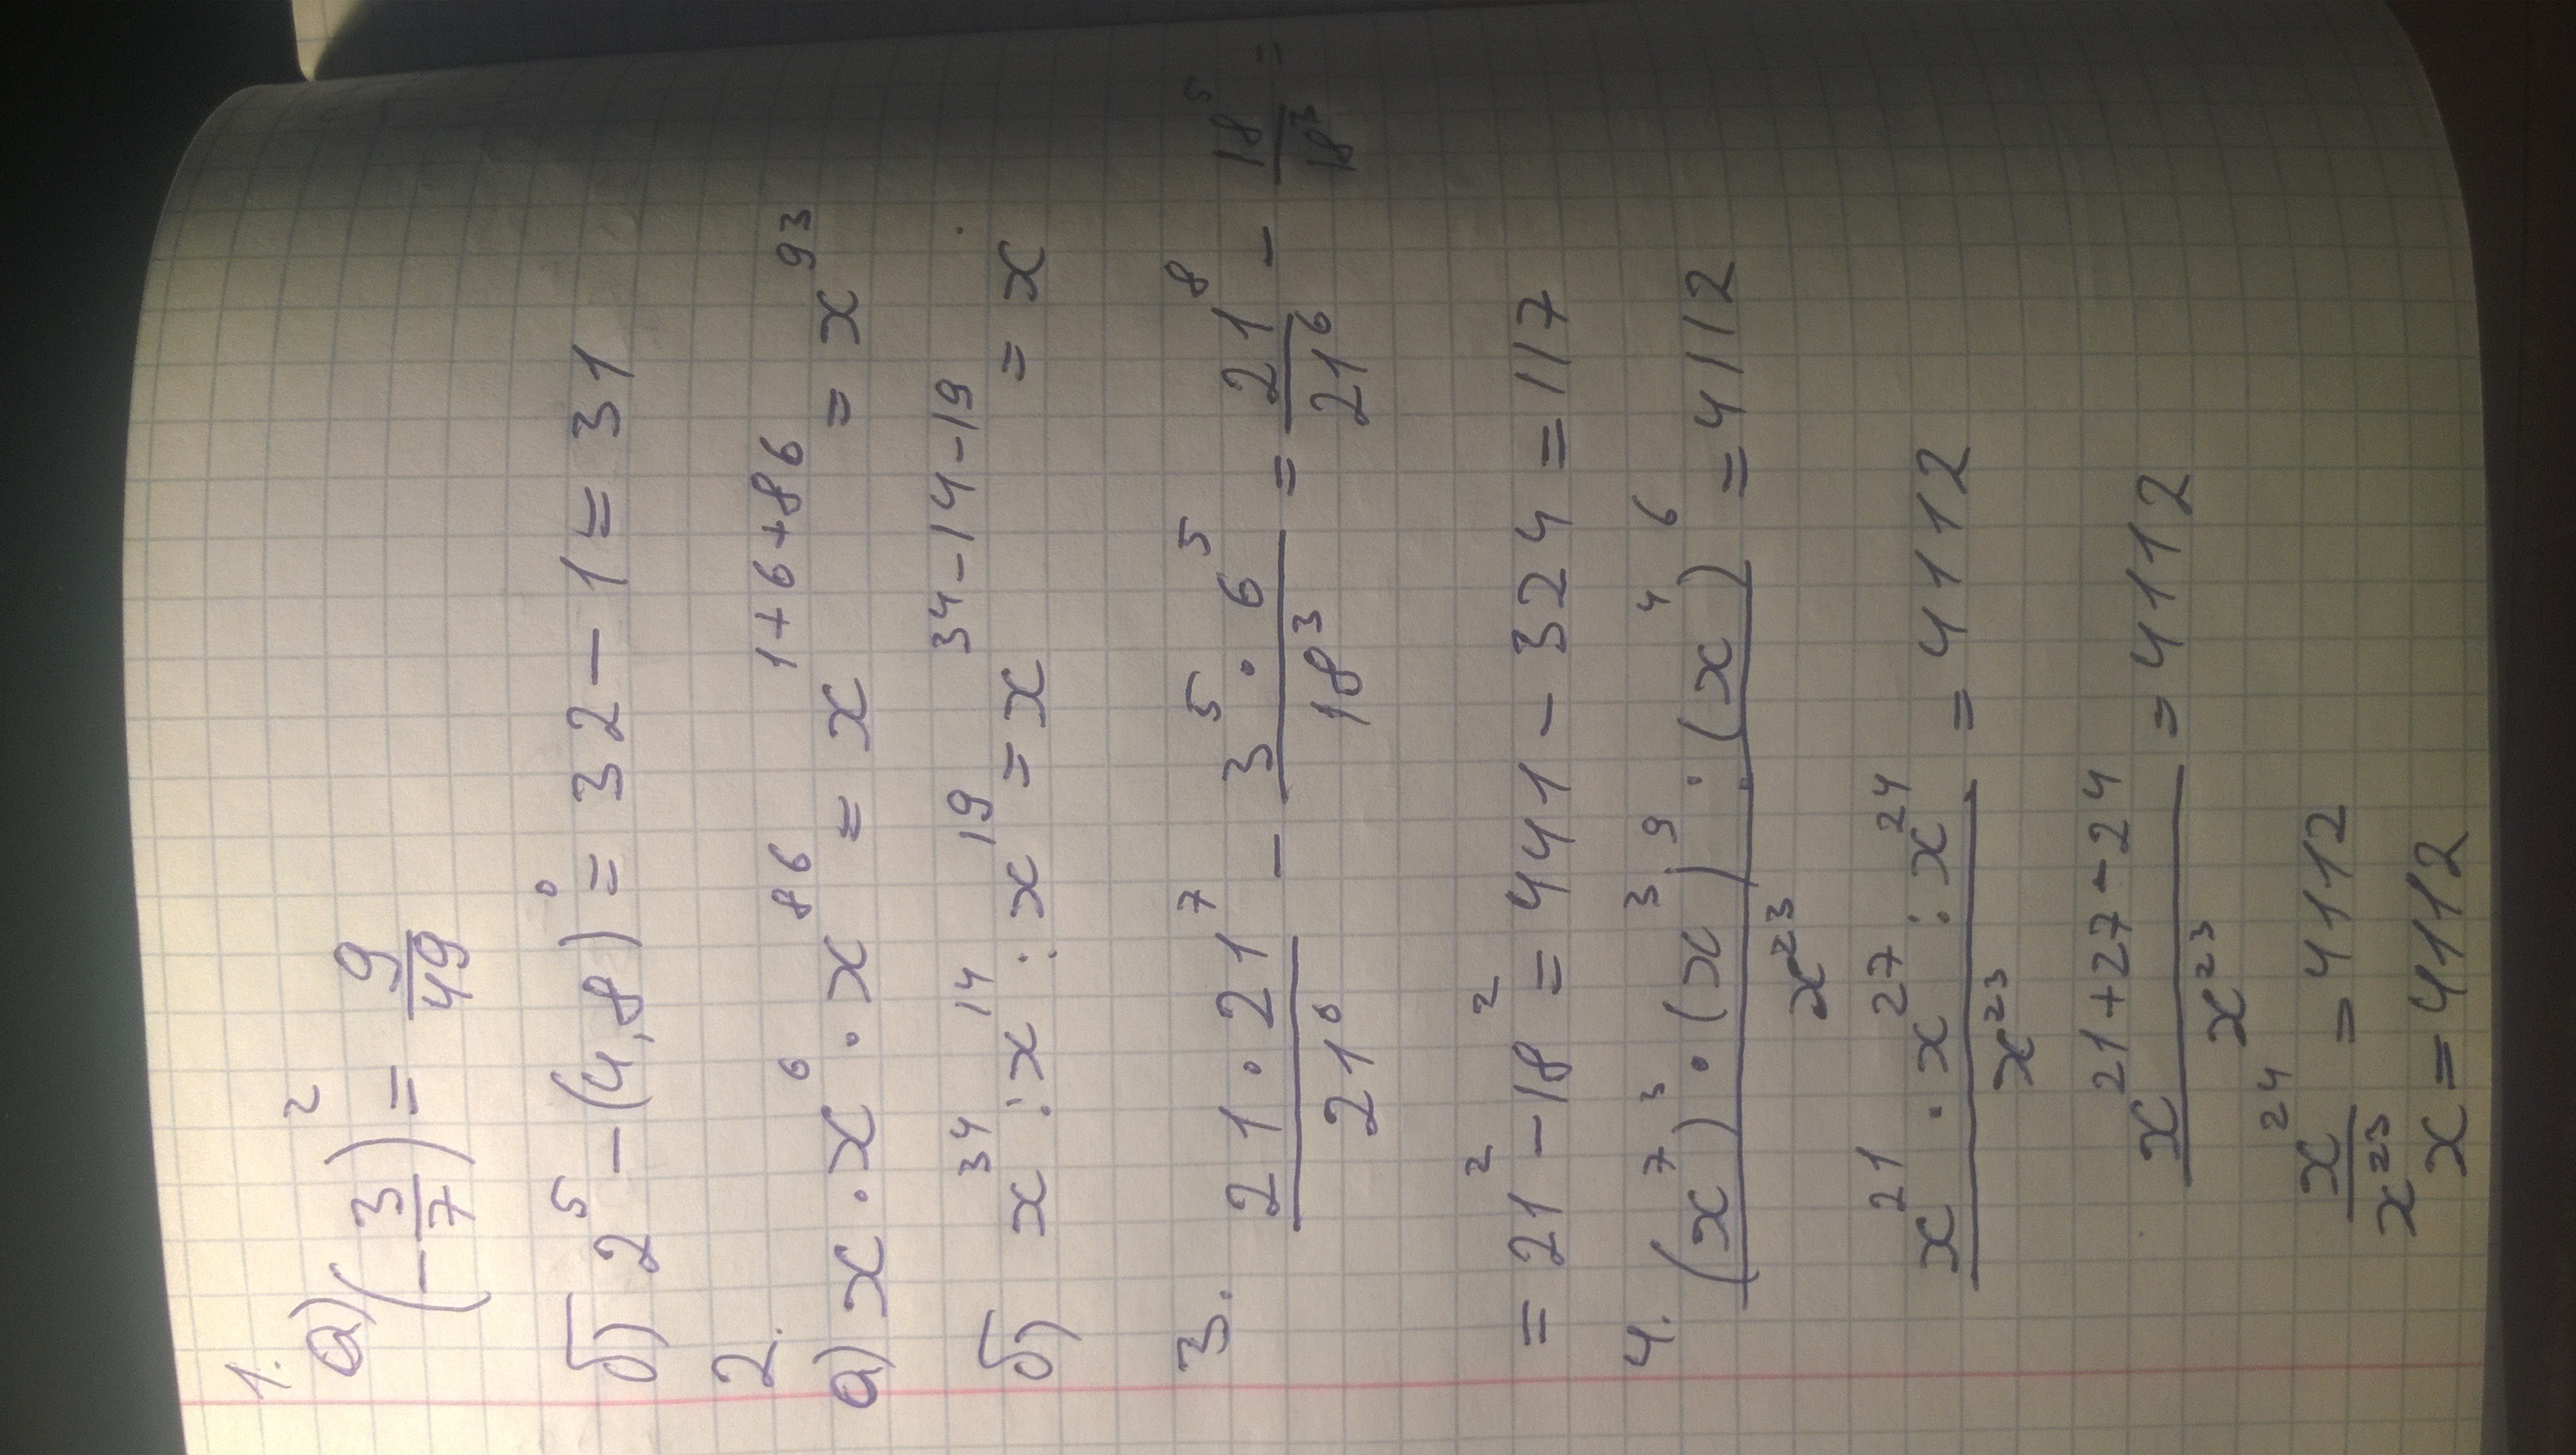 1.
а) (-3/7)² = 9/49
б) 2⁵ - (4,8)⁰ = 32 - 1 = 31
2.
а) x · x⁶ · x⁸⁶ = x¹⁺⁶⁺⁸⁶ = x⁹³
б) x³⁴ : x¹⁴ : x¹⁹ = x³⁴⁻¹⁴⁻¹⁹ = x
3. (21 · 21⁷)/21⁶ - (3⁵ · 6⁵)/18³ = 21⁸/21⁶ - 18⁵/18³ =
= 21² - 18² = 441 - 324 = 117
4. ((x⁷)³ · (x³)⁹ : (x⁴)⁶)/x²³ = 4112
(x²¹ · x²⁷ : x²⁴)/x²³ = 4112
x²¹⁺²⁷⁻²⁴/x²³ = 4112
x²⁴/x²³ = 4112
x = 4112